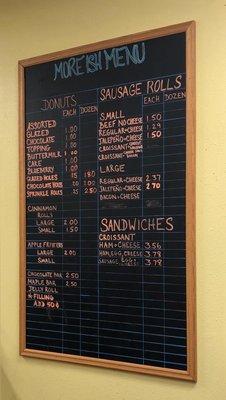 MORE ISH MENU
DONUTS
EACH DOZEN
ASSORTED
GLAZED 1.00
CHOCOLATE 1.00
TOPPING 1.00
BUTTERMILK 1.00
CAKE 1.00
BLUEBERRY 1.00
GLAZED HOLES .15 1.80
CHOCOLATE HOLES 2.00
SPRINKLE HOLES .25 2.50
CINNAMON
ROLLS
LARGE 2.00
SMALL 1.50
APPLE FRITTERS
LARGE 2.00
SMALL 1.50
CHOCOLATE BAR 2.50
MAPLE BAR 2.50
JELLY ROLL
* FILLING
ADD 50¢
SAUSAGE ROLLS
EACH DOZEN
SMALL
BEEF NO CHEESE 1.50
REGULAR + CHEESE 1.29
JALEPEÑO + CHEESE 1.50
CROISSANT
CROISSANT
LARGE
REGULAR + CHEESE 2.37
JALEPEÑO + CHEESE 2.70
BACON + CHEESE
SANDWICHES
CROISSANT
HAM + CHEESE 3.56
HAM, EGG, CHEESE 3.78
SAUSAGE, EGG, CHEESE 3.78